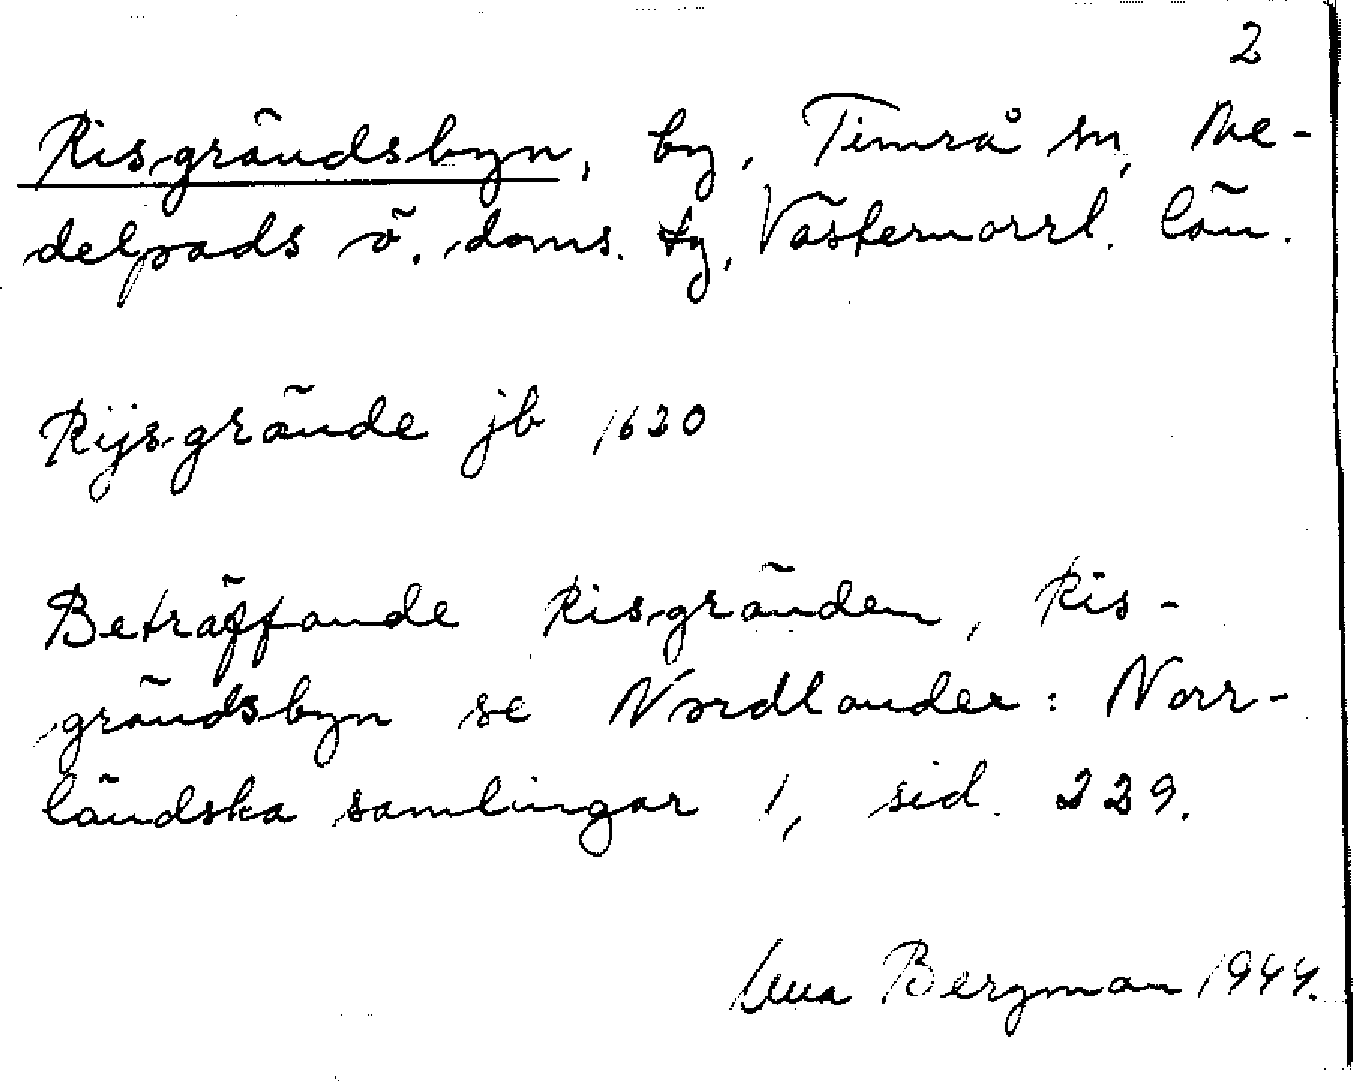 2
Risgrändsbyn, by, Timrå sn, Me-
delpads ö. doms. tg, Västernorrl. län.
Rijsgrände jb 1630
Beträffande Risgränden, Ris-
grändsbyn se Nordlander: Norr-
ländska samlingar 1, sid. 229.
Bergman 1944.